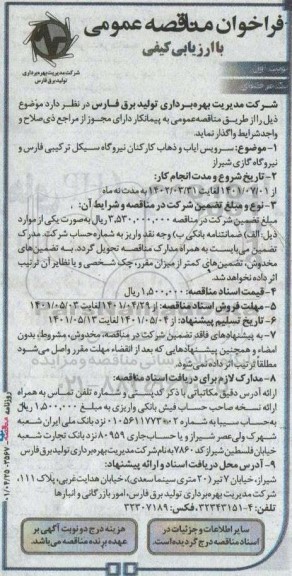 فراخوان مناقصه عمومی
با ارزیابی کیفی
شرکت مدیریت بهره‌برداری
تولید برق فارس
شرکت مدیریت بهره‌برداری تولید برق فارس در نظر دارد موضوع
ذیل را از طریق مناقصه عمومی به پیمانکار دارای مجوز از مراجع ذی‌صلاح و
واجد شرایط واگذار نماید.
۱- موضوع: سرویس ایاب و ذهاب کارکنان نیروگاه سیکل ترکیبی فارس و
نیروگاه گازی شیراز
۲- تاریخ شروع و مدت انجام کار:
از ۱۴۰۱/۰۷/۰۱ لغایت ۱۴۰۲/۰۳/۳۱ به مدت نه ماه
۳- نوع و مبلغ تضمین شرکت در مناقصه و شرایط آن:
مبلغ تضمین شرکت در مناقصه ۳,۵۳۰,۰۰۰,۰۰۰ ریال به صورت یکی از موارد
ذیل: الف) ضمانتنامه بانکی ب) وجه نقد واریز به شماره حساب شرکت. مدرک
تضمین می‌بایست به همراه مدارک مناقصه تحویل گردد. به تضمین‌های
مخدوش، تضمین‌های کمتر از میزان مقرر، چک شخصی و یا نظایر آن ترتیب
اثر داده نخواهد شد.
۴- قیمت اسناد مناقصه: ۱,۵۰۰,۰۰۰ ریال
۵- مهلت فروش اسناد مناقصه: از ۱۴۰۱/۰۴/۲۹ لغایت ۱۴۰۱/۰۵/۰۳
۶- تاریخ تسلیم پیشنهاد: از ۱۴۰۱/۰۵/۰۴ لغایت ۱۴۰۱/۰۵/۱۳
۷- به پیشنهادهای فاقد تضمین شرکت در مناقصه، مخدوش، مشروط، بدون
امضاء و همچنین پیشنهادهایی که بعد از انقضاء مهلت مقرر واصل می‌شود
مطلقا ترتیب اثر داده نمی‌شود.
۸- مدارک لازم برای دریافت اسناد مناقصه:
ارائه آدرس دقیق مکاتباتی با ذکر کدپستی و شماره تلفن تماس به همراه
ارائه نسخه صاحب حساب فیش بانکی واریزی به مبلغ ۱,۵۰۰,۰۰۰ ریال
به حساب سیبا به شماره ۰۱۰۵۶۱۱۷۷۳۰۰۲ نزد بانک ملی ایران شعبه
شهرک ولی عصر شیراز و یا حساب جاری ۸۰۹۵۹ نزد بانک تجارت شعبه
خیابان فلسطین شیراز کد ۷۸۶۰ به نام شرکت مدیریت بهره‌برداری تولید برق فارس
۹- آدرس محل دریافت اسناد و ارائه پیشنهاد:
شیراز، خیابان ۷ تیر (۲۰ متری سینما سعدی)، خیابان هدایت غربی، پلاک ۱۱۱،
شرکت مدیریت بهره‌برداری تولید برق فارس، امور بازرگانی و انبارها
تلفن: ۴-۳۲۳۴۳۱۵۱، فکس: ۳۲۳۰۷۱۸۹
سایر اطلاعات و جزئیات در
اسناد مناقصه درج گردیده است.
هزینه درج دو نوبت آگهی بر
عهده برنده مناقصه می‌باشد.